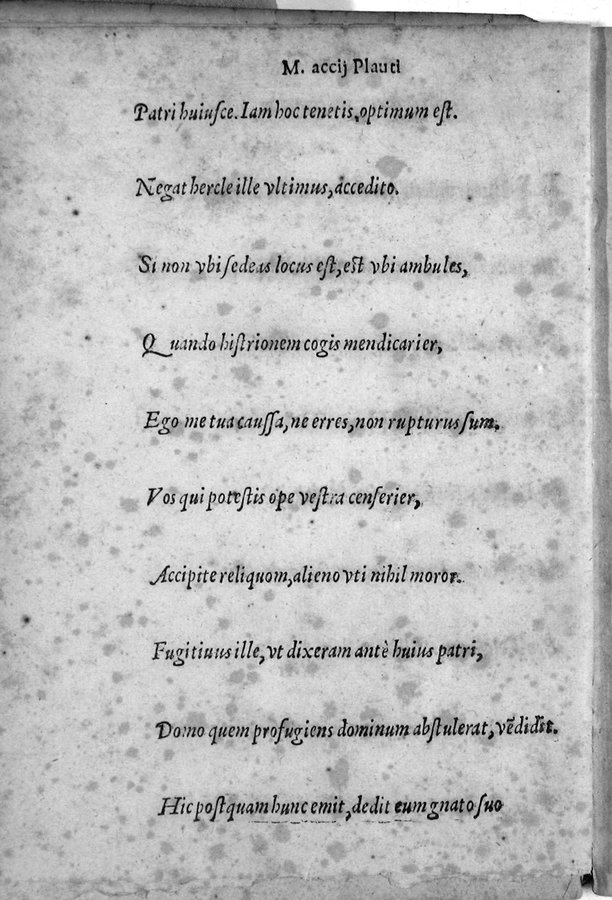 M. accij Plauti
Patri huiusce. Iam hoc tenetis, optimum est.
Negat hercle ille vltimus, accedito.
Si non vbi sedeas locus est, est vbi ambules,
Quando histrionem cogis mendicarier,
Ego me tua caussa, ne erres, non rupturus sum.
Vos qui potestis ope vestra censerier,
Accipite reliquom, alieno vti nihil moror.
Fugitiuus ille, vt dixeram antè huius patri,
Domo quem profugiens dominum abstulerat, vēdidit.
Hic postquam hunc emit, dedit eum gnato suo